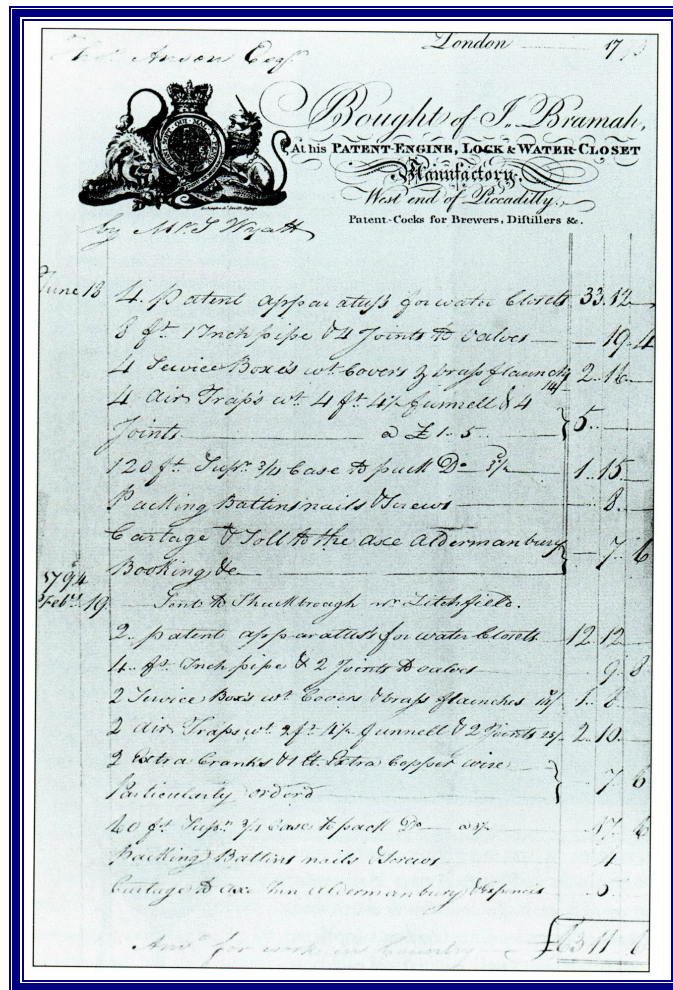 Tho.s Anson Esq.r London 17
Bought of J. Bramah,
At his PATENT-ENGINE, LOCK & WATER-CLOSET
Manufactory.
West end of Piccadilly.
Patent-Cocks for Brewers, Distillers &c.
by Mr. S Wyatt
June 13 4 patent apparatuss for water Closets 33..12
8 ft. 1 Inch pipe & 4 Joints to valves 19..4
4 Service Boxes wt. Covers & brass flaunch 14/ 2..16
4 Air Traps wt. 4 ft. 4 1/2 funnell & 4
Joints a £1..5 5..
120 ft. Supr. 3/4 Case to pack Do. 3 1/2 1..15
Packing Battins nails & Screws 8
Cartage & Toll to the axe Aldermanbury
Booking &c 7..6
1794
Feb.y 19 Sent to Shuckbrough nr. Litchfield.
2 patent apparatuss for water Closets 12..12
4 ft. Inch pipe & 2 Joints to valves 9..8
2 Service Box's wt. Covers & brass flaunches 14/ 1..8
2 Air Traps wt. 2 ft. 4 1/2 funnell & 2 Joints 25/ 2..10
2 Extra Cranks & Extra Copper wire
Particularly orderd 7..6
60 ft. Supr. 3/4 Case to pack Do. 17..6
Packing Battins nails & Screws 4
Cartage to axe Inn Aldermanbury & Expences 5
for work in Country £63 11 6